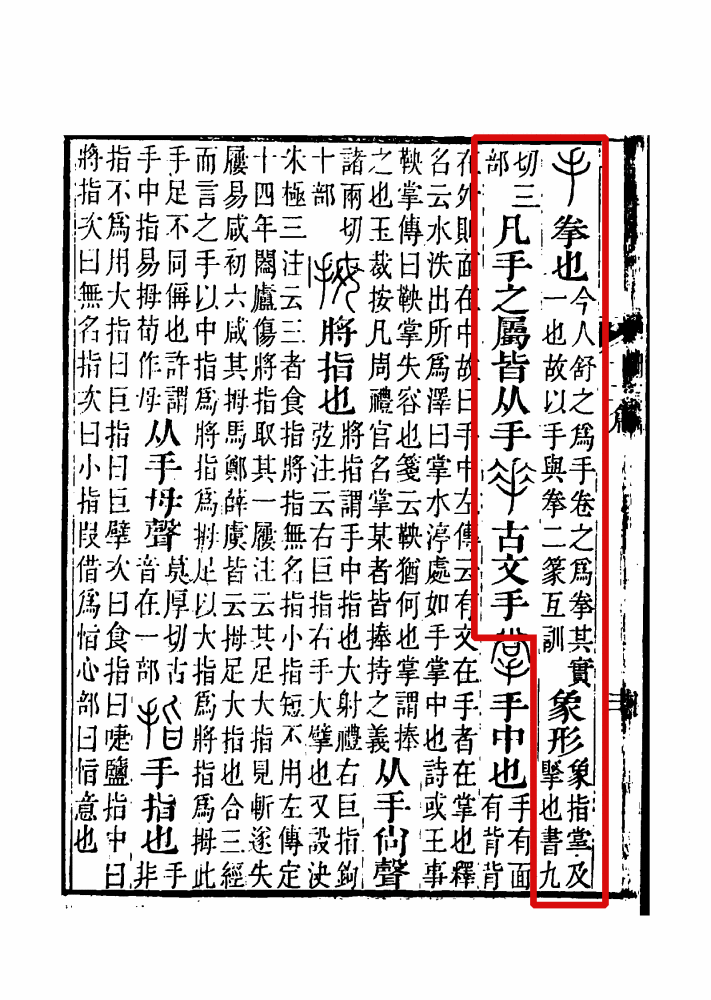 手拳也今人舒之爲手卷之爲拳其實一也故以手與拳二篆互訓象形象指掌及掔也書九
切三部凡手之屬皆从手𠂿古文手掌手中也手有面有背背
在外則面在中故曰手中左傳云有文在手者在掌也釋
名云水泆出所爲澤曰掌水渟處如手掌中也詩或王事
鞅掌傳曰鞅掌失容也箋云鞅猶何也掌謂捧之也玉裁按凡周禮官名掌某者皆捧持之義从手尚聲
諸兩切十部拇將指也將指謂手中指也大射禮右巨指鉤弦注云右巨指右手大擘也又設決
朱極三注云三者食指將指無名指小指短不用左傳定
十四年闔廬傷將指取其一屨注云其足大指見斬遂失
屨易咸初六咸其拇馬鄭薛虞皆云拇足大指也合三經
而言之手以中指爲將指爲拇足以大指爲將指爲拇此
手足不同偁也許謂手中指易拇荀作母从手母聲莫厚切古音在一部指手指也手非
指不爲用大指曰巨指曰巨擘次曰食指曰啑鹽指中曰
將指次曰無名指次曰小指叚借爲恉心部曰恉意也